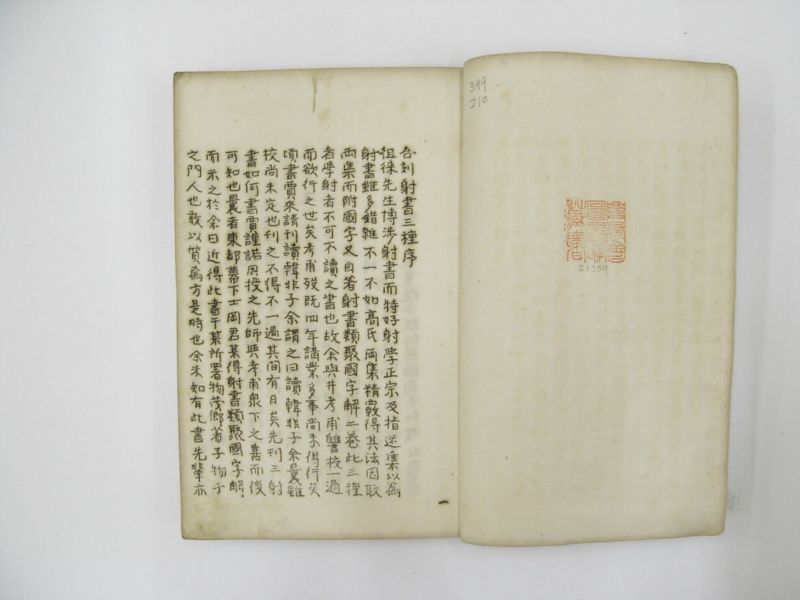 399
210
21359
合刻射書三種序
徂徠先生博涉射書而特好射學正宗及指迷集以為
射書雖多錯雜不一不如高氏兩集精覈得其法因取
兩集而附國字又自著射書類聚國字解二卷此三種
者學射者不可不讀之書也故余與井考甫讐校一過
而欲行之世矣考甫歿既四年講業多事尚未得行矣
頃書賈來請刊讀韓非子余謂之曰讀韓非子余曩雖
校尚未定也刊之不得不一過其間有日矣先刊三射
書如何書賈謹諾因授之先師與考甫泉下之喜而後
可知也曩者東都幕下士岡君某得射書類聚國字解
而示之於余曰近得此書于某所署物茂卿著子物子
之門人也敢以質焉方是時也余未知有此書先輩亦